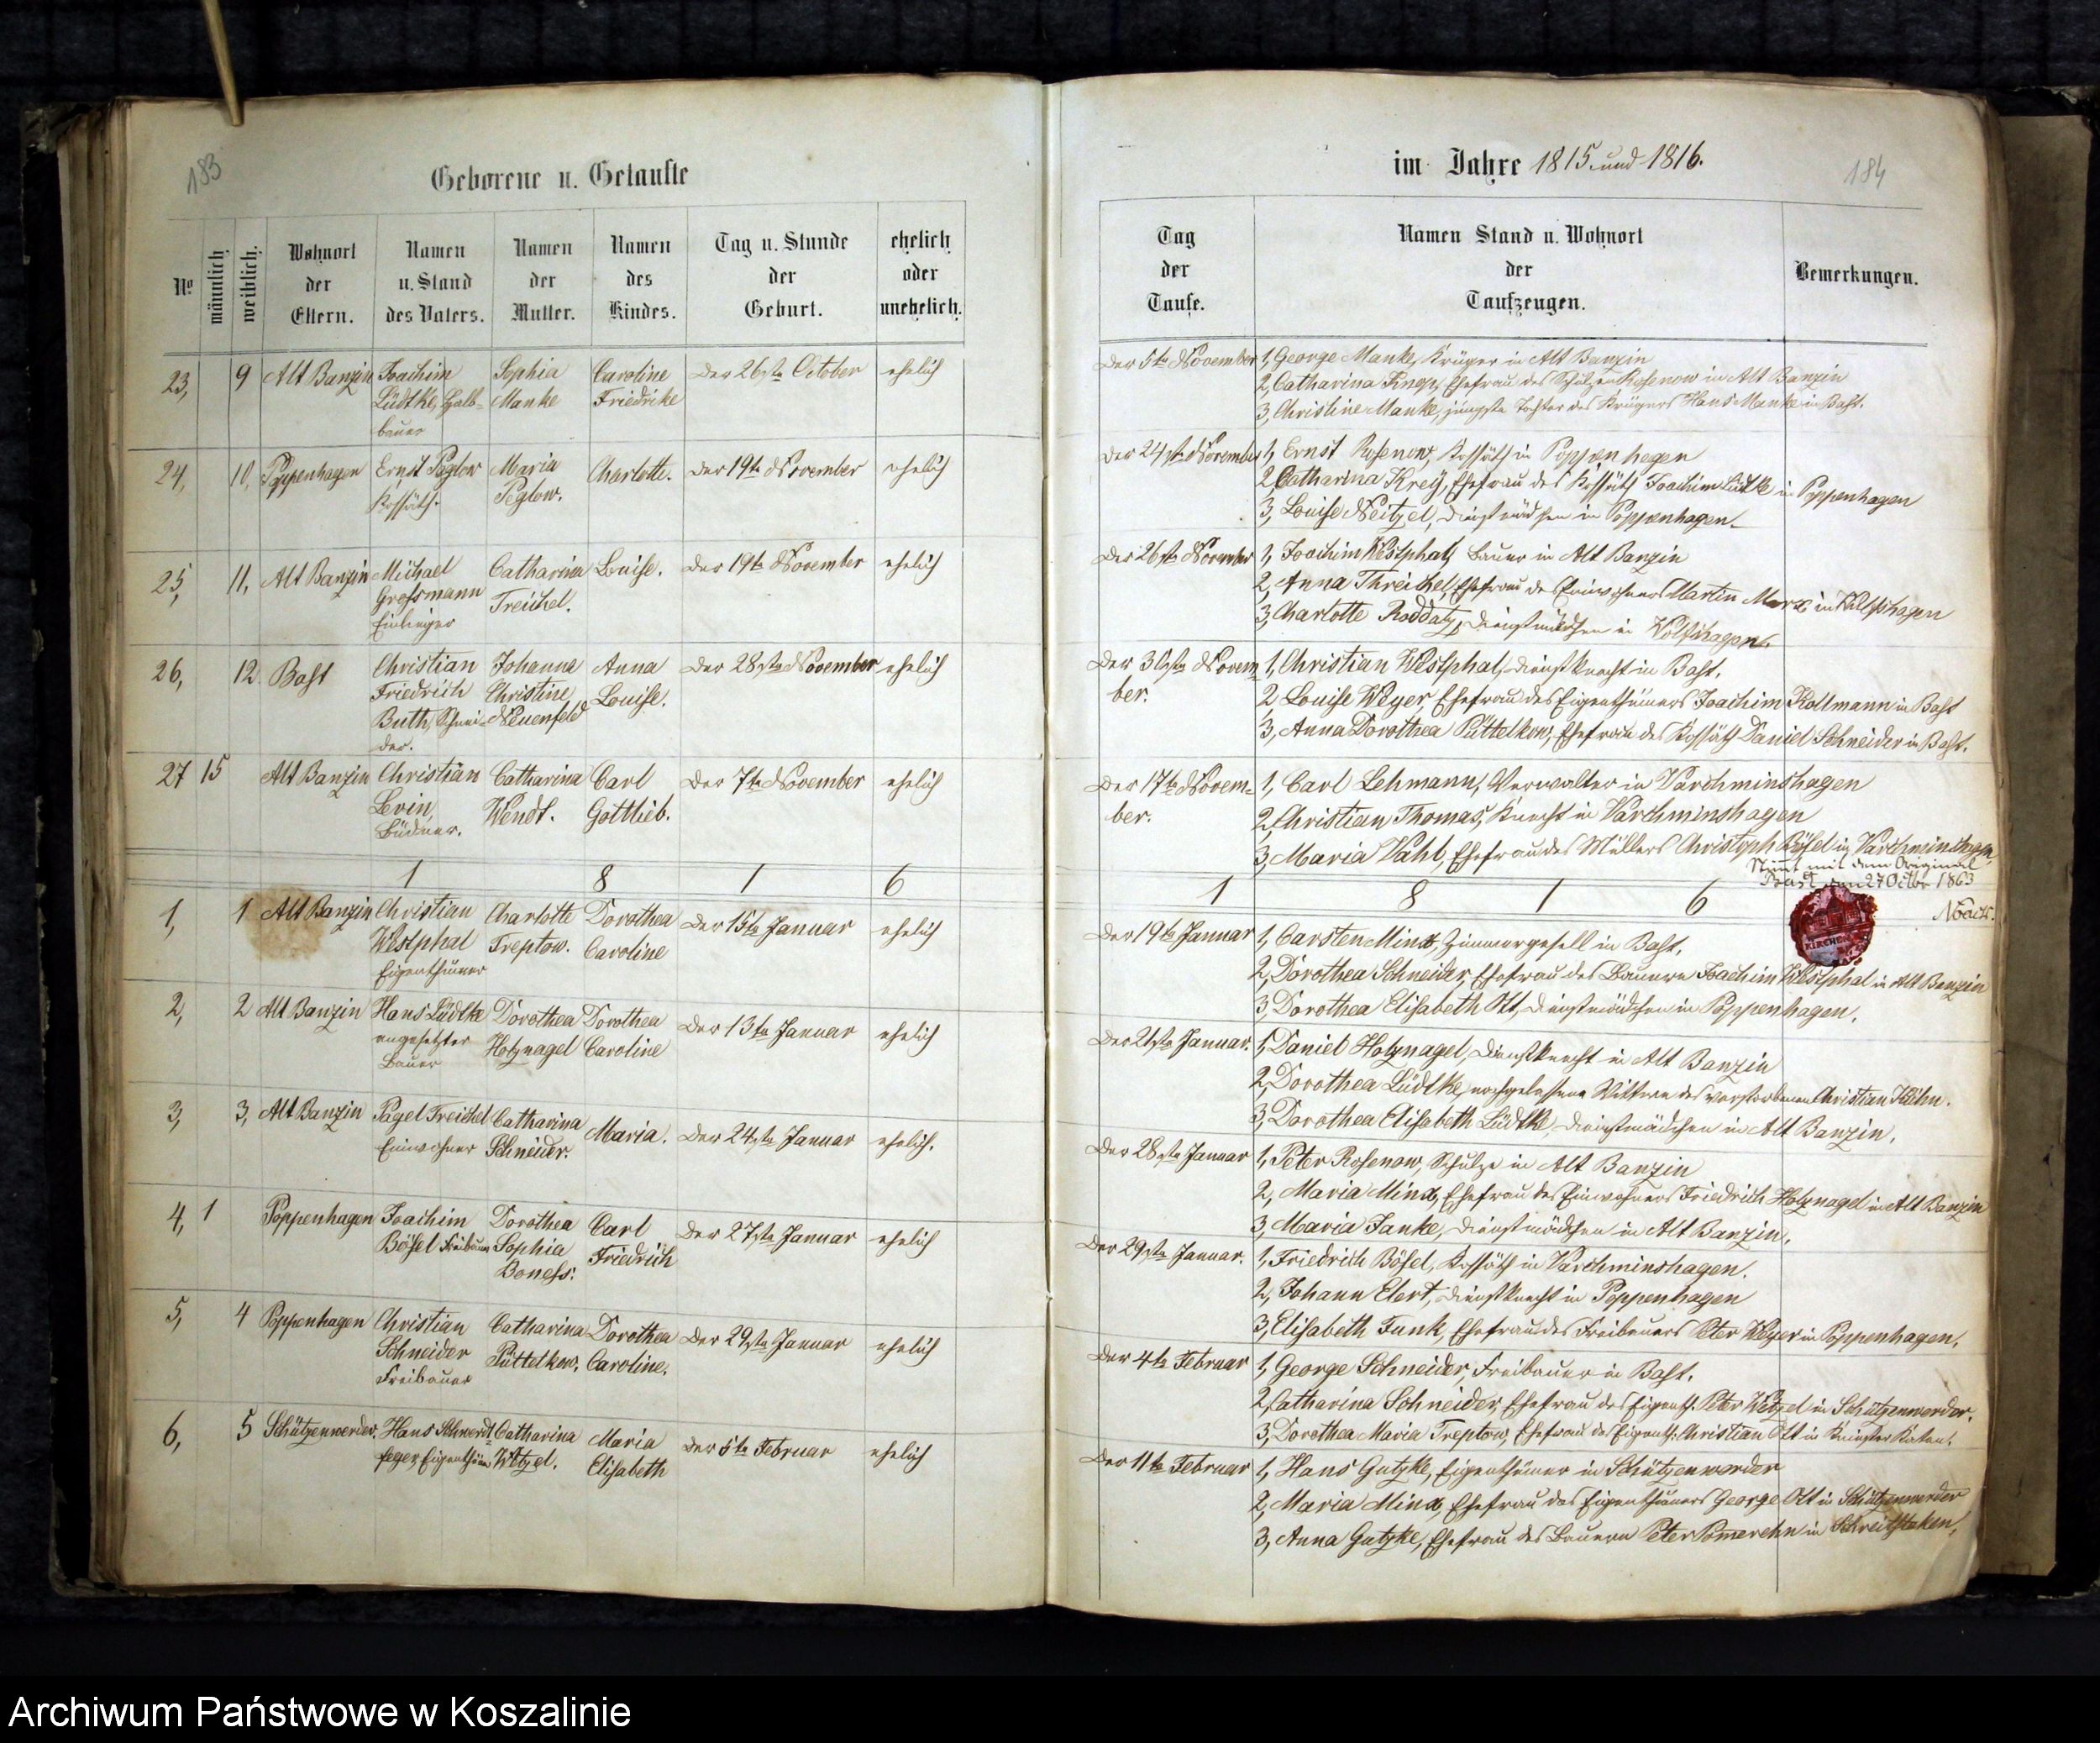 183
Geborene u. Getaufte
No
männlich
weiblich.
Wohnort der Eltern.
Namen u. Stand des Vaters.
Namen der Mutter.
Namen des Kindes.
Tag u. Stunde der Geburt.
ehelich oder unehelich.
23, 9 Alt Banzin Joachim Sophia Caroline Der 26ste October ehelich
Lüdtke, Halb- Manke Friedrike
bauer
24, 10, Poppenhagen Ernst Peglow Maria Charlotte. Der 19te November ehelich
Kossäth. Peglow.
25, 11, Alt Banzin Michael Catharina Louise. Der 19te November ehelich
Grossmann Treichel.
Einlieger
26, 12 Bast Christian Johanna Anna Der 28ste November ehelich
Friedrich Christine Louise.
Buth, Schnei- Neuenfeld
der.
27 15 Alt Banzin Christian Catharina Carl Der 7te November ehelich
Levin, Wendt. Gottlieb.
Büdner.
1 8 1 6
1, 1 Alt Banzin Christian Charlotte Dorothea Der 15te Januar ehelich
Westphal Treptow. Caroline
Eigenthümer
2, 2 Alt Banzin Hans Lüdtke Dorothea Dorothea Der 13te Januar ehelich
angesetzter Holznagel Caroline
Bauer
3, 3, Alt Banzin Pagel Treichel Catharina Maria. Der 24ste Januar ehelich.
Einwohner Schneider.
4, 1 Poppenhagen Joachim Dorothea Carl Der 27ste Januar ehelich
Bösel Freibauer Sophia Friedrich
Boness.
5, 4 Poppenhagen Christian Catharina Dorothea Der 29ste Januar ehelich
Schneider Püttelkow. Caroline.
Freibauer
6, 5 Schützenwerder. Hans Schwerdt- Catharina Maria Der 5te Februar ehelich
feger Eigenthüm Witzel. Elisabeth
im Jahre 1815 und 1816.
184
Tag der Taufe.
Namen Stand u. Wohnort der Taufzeugen.
Bemerkungen.
Der 5te November 1, George Manke, Krüger in Alt Banzin
2, Catharina Knop, Ehefrau des Schulzen Rosenow in Alt Banzin
3, Christine Manke, jüngste Tochter des Krügers Hans Manke in Bast.
Der 24ste November 1, Ernst Rosenow, Kossäth in Poppenhagen
2 Catharina Krey, Ehefrau des Kossäth Joachim Lüdtke in Poppenhagen
3, Louise Neitzel, Dienstmädchen in Poppenhagen
Der 26ste November 1, Joachim Westphal, Bauer in Alt Banzin
2, Anna Threichel, Ehefrau des Einwohners Martin Marx in Wolfshagen
3, Charlotte Raddatz, Dienstmädchen in Wolfshagen.
Der 30ste Novem- 1, Christian Westphal, Dienstknecht in Bast.
ber. 2 Louise Weyer, Ehefrau des Eigenthümers Joachim Kollmann in Bast
3, Anna Dorothea Püttelkow, Ehefrau des Kossäth Daniel Schneider in Bast.
Der 17te Novem- 1, Carl Lehmann, Verwalter in Varchminshagen
ber. 2, Christian Thomas, Knecht in Varchminshagen
3, Maria Vahl, Ehefrau des Müllers Christoph Bösel in Varchminshagen
Stimmt mit dem Original
Bast den 27 Octbr 1863
1 8 1 6
Noack.
KIRCHEN
Der 19te Januar 1, Carsten Minx, Zimmergesell in Bast.
2, Dorothea Schneider, Ehefrau des Bauern Joachim Westphal in Alt Banzin
3, Dorothea Elisabeth Ott, Dienstmädchen in Poppenhagen.
Der 21ste Januar. 1, Daniel Holznagel, Dienstknecht in Alt Banzin
2, Dorothea Lüdtke, nachgelassene Wittwe des verstorbenen Christian Hühn.
3, Dorothea Elisabeth Lüdtke, Dienstmädchen in Alt Banzin.
Der 28ste Januar 1, Peter Rosenow, Schulze in Alt Banzin
2, Maria Minx, Ehefrau des Einwohners Friedrich Holznagel in Alt Banzin
3, Maria Janke, Dienstmädchen in Alt Banzin.
Der 29ste Januar. 1, Friedrich Bösel, Kossäth in Varchminshagen.
2, Johann Elert, Dienstknecht in Poppenhagen
3, Elisabeth Funk, Ehefrau des Freibauers Peter Weyer in Poppenhagen.
Der 4te Februar 1, George Schneider, Freibauer in Bast.
2, Catharina Schneider, Ehefrau des Eigenth. Peter Witzel in Schützenwerder.
3, Dorothea Maria Treptow, Ehefrau des Eigenth. Christian Ott in Katen.
Der 11te Februar 1, Hans Gutzke, Eigenthümer in Schützenwerder
2, Maria Minx, Ehefrau des Eigenthümers George Ott in Schützenwerder
3, Anna Gutzke, Ehefrau des Bauern Peter Pomerehn in Streitzstaken.
Archiwum Państwowe w Koszalinie